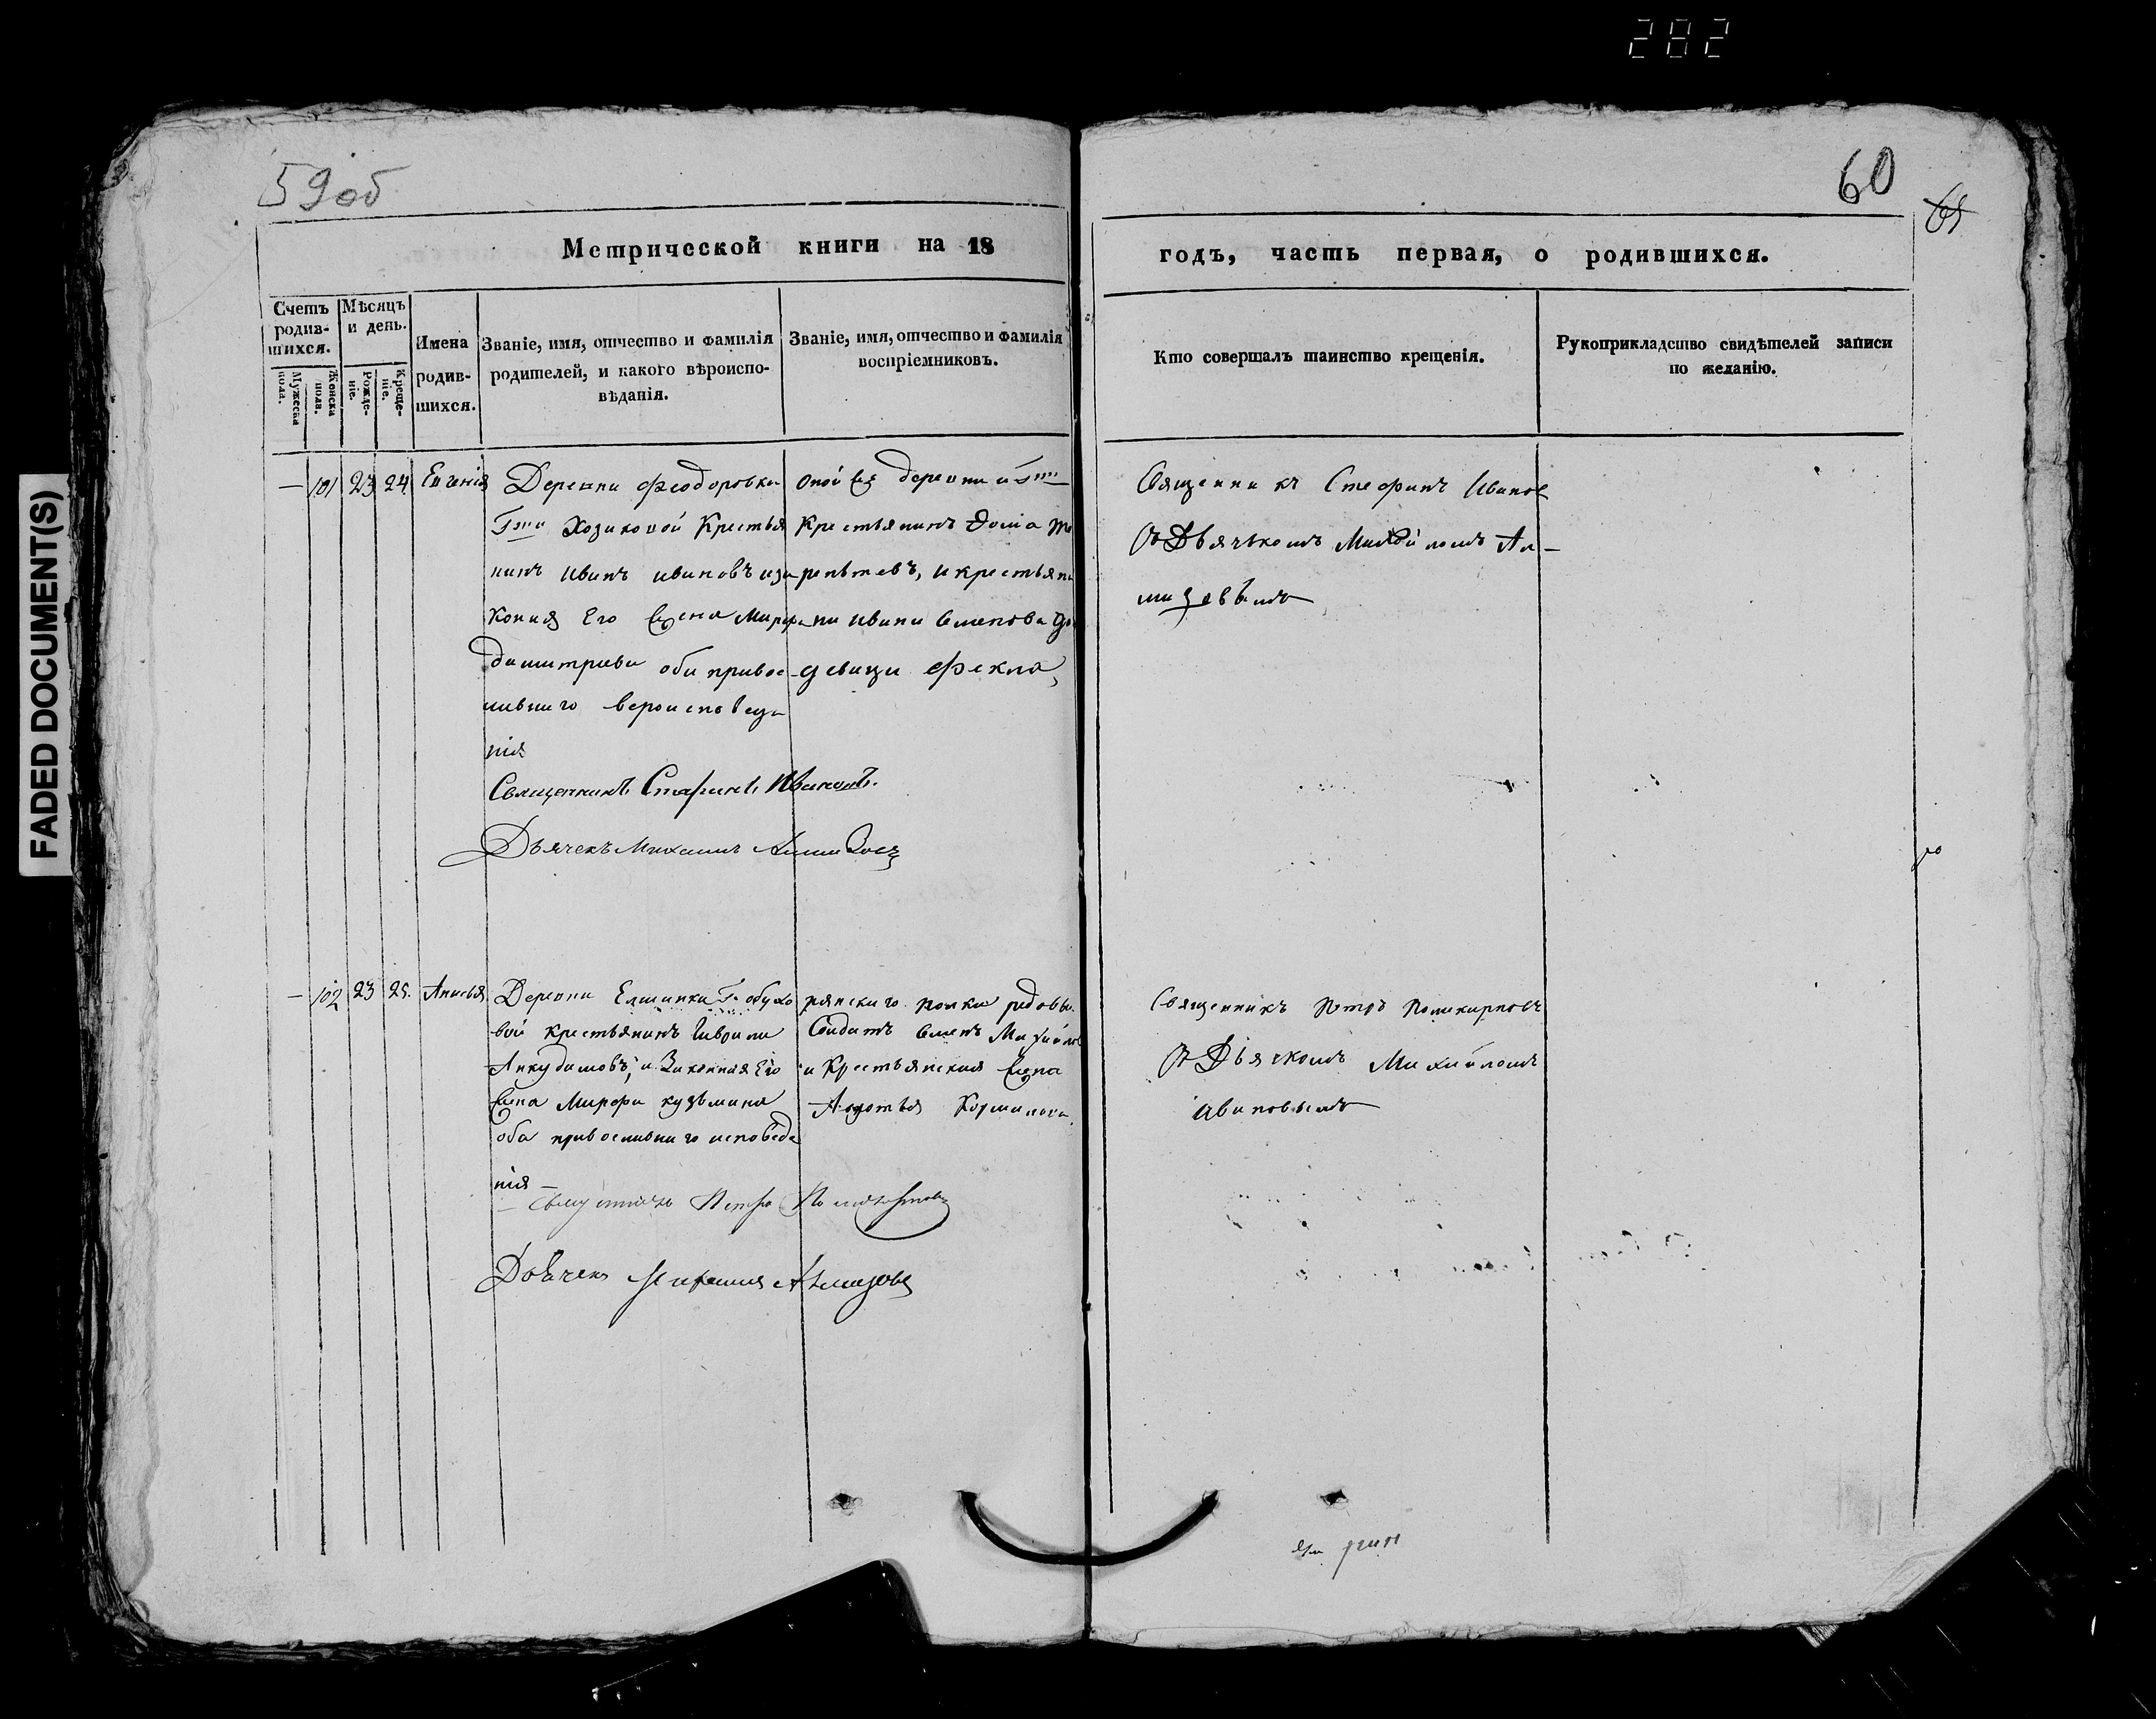 282
FADED DOCUMENT(S)
59об
60
Метрической книги на 18
годъ, часть первая, о родившихся.
Счетъ родив-шихся.
Мужеска пола.
Женска пола.
Мѣсяцъ и день.
Рожде-ніе.
Креще-ніе.
Имена родив-шихся.
Званіе, имя, отчество и фамилія
родителей, и какого вѣроиспо-
вѣданія.
Званіе, имя, отчество и фамилія
воспріемниковъ.
Кто совершалъ таинство крещенія.
Рукоприкладство свидѣтелей записи
по желанію.
— 101 23 24 Евгенія
Деревни Феодоровки
Гжи Хозиковой Крестья
нинъ Иванъ Ивановъ и за
конная Его Жена Марфа
Дмитриева оба правос-
лавнаго вероисповеда
нія
Священникъ Стефанъ Ивановъ.
Дьячекъ Михаилъ Алмазовъ
оной же деревни и Гжи
Крестьянинъ
и крестьяни
на Ивана Семенова до
девица Фекла,
Священникъ Стефанъ Иванов
съ Дьячкомъ Михайломъ Ал-
мазовымъ
— 102 23 25. Анисья
Деревни Елшанки Г. обухо
вой крестьянинъ Гаврила
Анкудимовъ, и Законная Его
Жена Марфа кузьмина
оба православнаго исповеда
нія —
Священникъ Петръ Поликарповъ
Дьячекъ Михаилъ Алмазовъ
полка рядовы
Солдатъ Семенъ Михайлов
и Крестьянская Жена
Авдотья
Священникъ Петръ Поликарповъ
съ Дьячкомъ Михайломъ
Ивановымъ